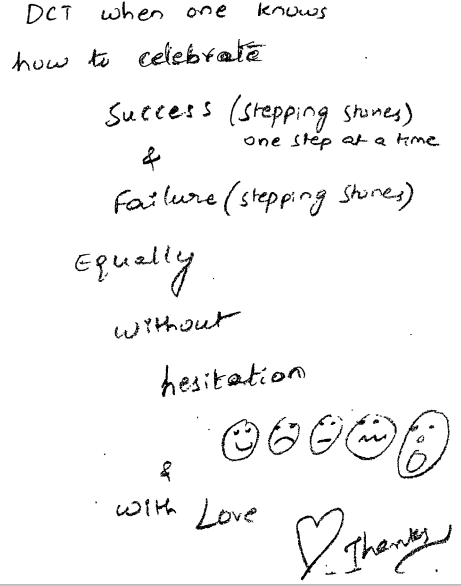 DCT when one knows
how to celebrate
Success (stepping stones)
one step at a time
&
Failure (stepping stones)
Equally
without
hesitation
&
with Love
Thanks